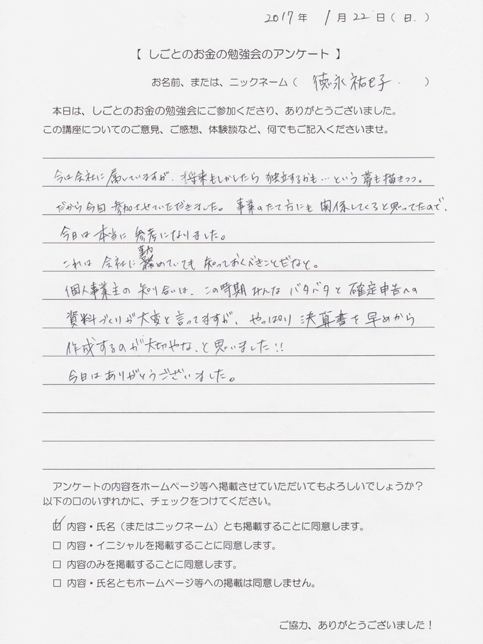 2017年 1月22日(日.)
【 しごとのお金の勉強会のアンケート 】
お名前、または、ニックネーム( 徳永祐巳子 )
本日は、しごとのお金の勉強会にご参加くださり、ありがとうございました。
この講座についてのご意見、ご感想、体験談など、何でもご記入くださいませ。
今は会社に属していますが、将来もしかしたら独立するかも…という夢も描きつつ。
だから今日参加させていただきました。事業のたて方にも関係してくると思ってたので、
今日は本当に参考になりました。
これは会社に勤めていても知っておくべきことだなと。
個人事業主の知り合いは、この時期みんなバタバタと確定申告への
資料づくりが大変と言ってますが、やっぱり決算書を早めから
作成するのが大切やな、と思いました!!
今日はありがとうございました。
アンケートの内容をホームページ等へ掲載させていただいてもよろしいでしょうか?
以下の口のいずれかに、チェックをつけてください。
☑ 内容・氏名(またはニックネーム)とも掲載することに同意します。
□ 内容・イニシャルを掲載することに同意します。
□ 内容のみを掲載することに同意します。
□ 内容・氏名ともホームページ等への掲載は同意しません。
ご協力、ありがとうございました!